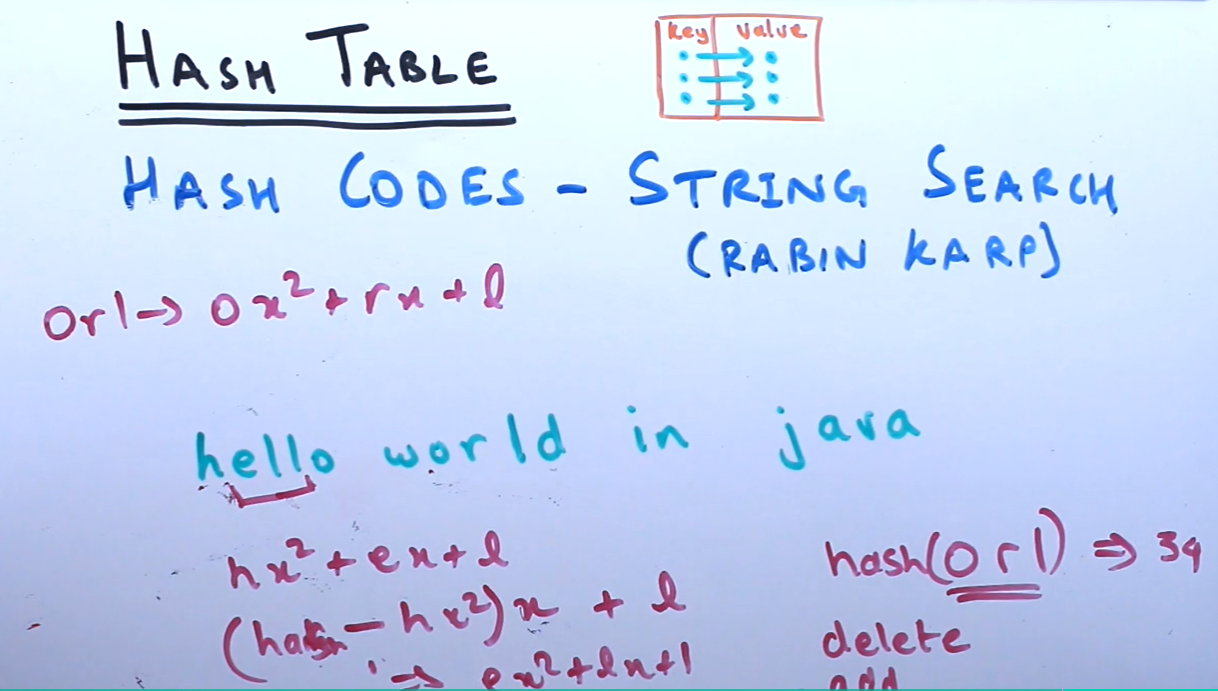 HASH TABLE
key value
HASH CODES - STRING SEARCH
(RABIN KARP)
orl → ox² + rx + l
hello world in java
hx² + ex + l
(hash - hx²)x + l
→ ex² + lx + l
hash(orl) ⇒ 34
delete
add